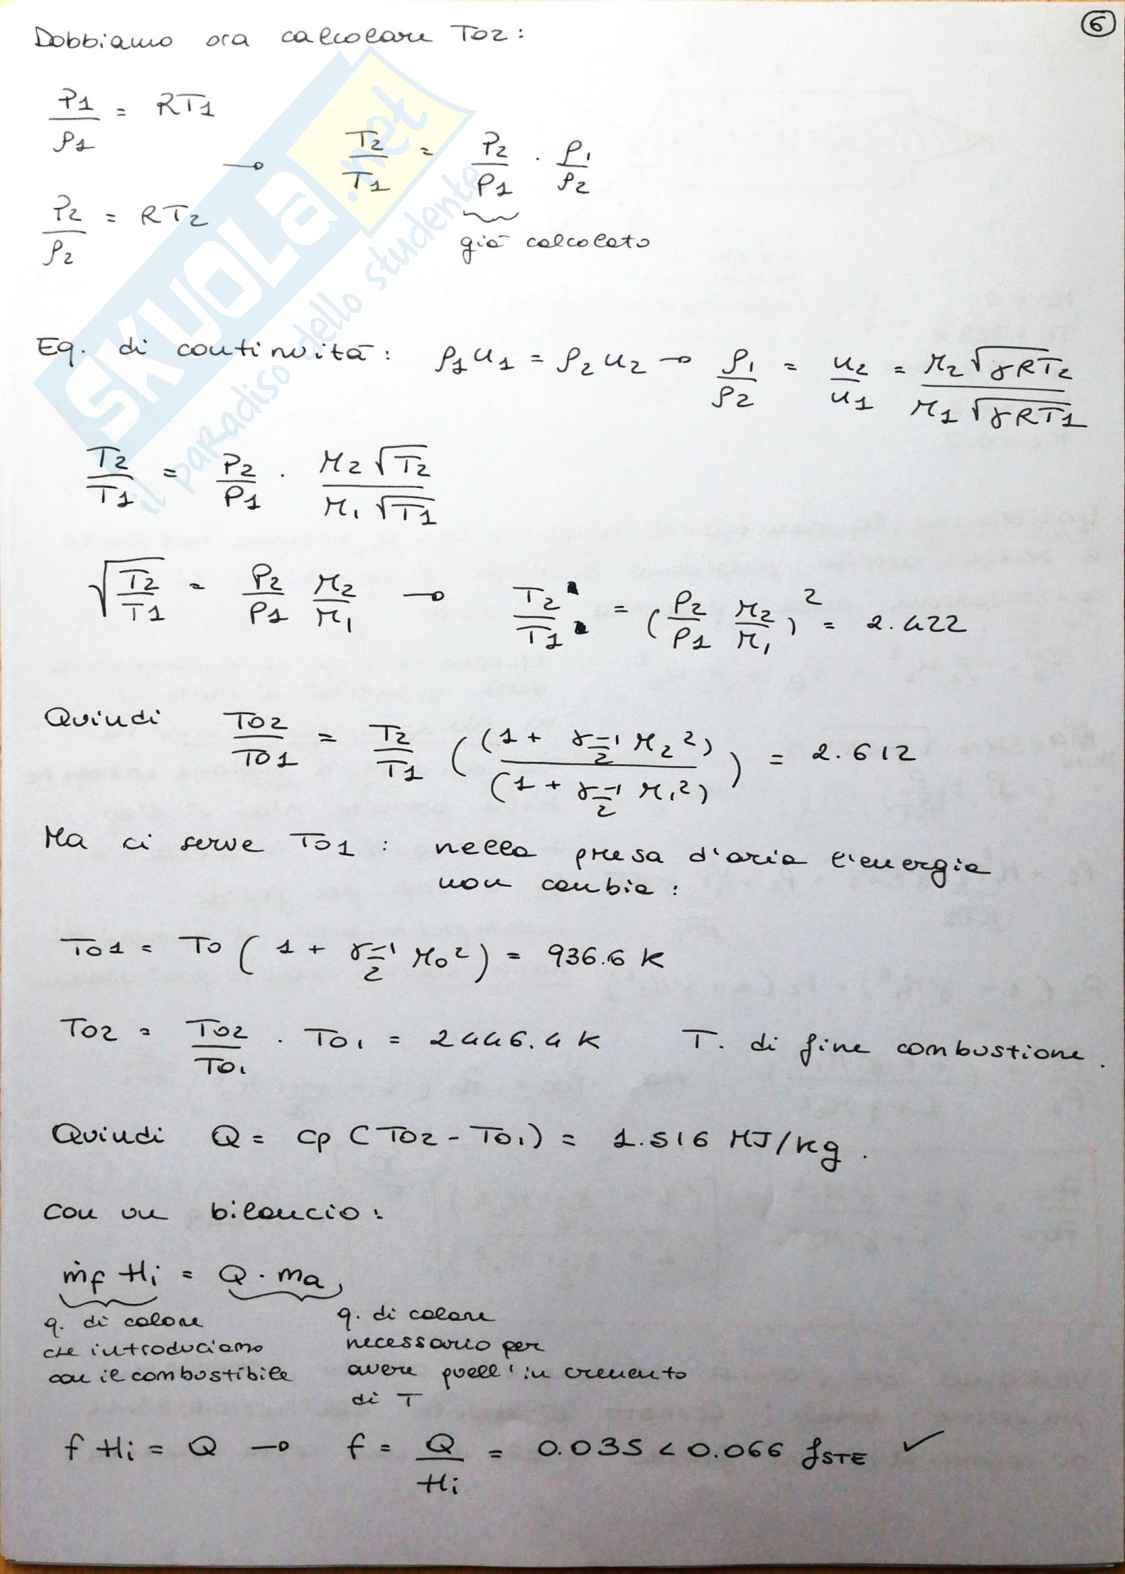 6
Dobbiamo ora calcolare T02:
P1/ρ1 = RT1
→ T2/T1 = P2/P1 · ρ1/ρ2
P2/ρ2 = RT2
già calcolato
SKUOLA.net
il paradiso dello studente
Eq. di continuità: ρ1u1 = ρ2u2 → ρ1/ρ2 = u2/u1 = M2√γRT2 / M1√γRT1
T2/T1 = P2/P1 · M2√T2 / M1√T1
√T2/T1 = P2/P1 M2/M1 → T2/T1 = (P2/P1 M2/M1)² = 2.422
Quindi T02/T01 = T2/T1 ((1 + γ-1/2 M2²) / (1 + γ-1/2 M1²)) = 2.612
Ma ci serve T01: nella presa d'aria l'energia
non cambia:
T01 = T0 (1 + γ-1/2 M0²) = 936.6 K
T02 = T02/T01 · T01 = 2446.4 K T. di fine combustione.
Quindi Q = cp (T02 - T01) = 1.516 MJ/kg.
con un bilancio:
ṁf Hi = Q · ma,
q. di calore
che introduciamo
con il combustibile
q. di calore
necessario per
avere quell'incremento
di T
f Hi = Q → f = Q/Hi = 0.035 < 0.066 fSTE ✓